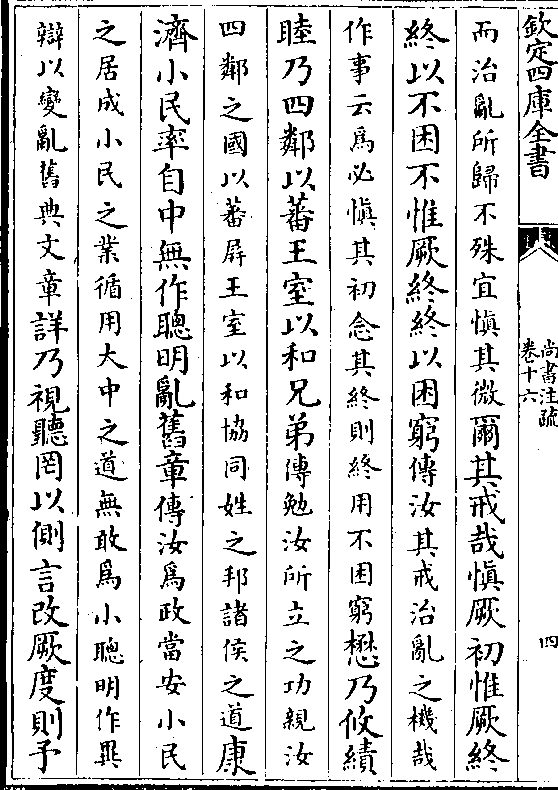 欽定四庫全書
尚書注疏
卷十六
四
而治亂所歸不殊宜愼其微爾其戒哉愼厥初惟厥終
終以不困不惟厥終終以困窮傳汝其戒治亂之機哉
作事云爲必愼其初念其終則終用不困窮懋乃攸績
睦乃四鄰以蕃王室以和兄弟傳勉汝所立之功親汝
四鄰之國以蕃屏王室以和協同姓之邦諸侯之道康
濟小民率自中無作聰明亂舊章傳汝爲政當安小民
之居成小民之業循用大中之道無敢爲小聰明作異
辯以變亂舊典文章詳乃視聽罔以側言改厥度則予